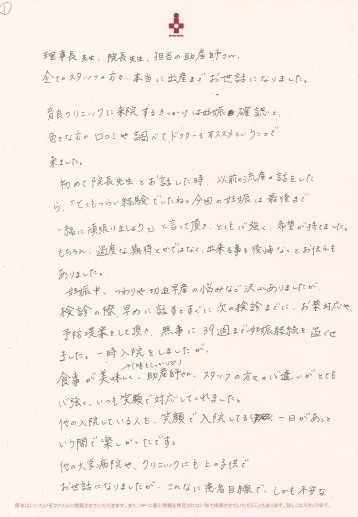 ①
理事長先生、院長先生、担当の助産師さん、
全てのスタッフの方々、本当に出産までお世話になりました。
育良クリニックに来院するきっかけは妊娠確認と、
色々な方の口コミや調べてドクターもオススメということで
来ました。
初めて院長先生とお話した時、以前の流産の話をした
ら、「とてもつらい経験でしたね。今回の妊娠は最後まで
一緒に頑張りましょう」と言って頂き、とても心強く、希望が持てました。
もちろん、過度な期待とかではなく、出来る事を後悔な とお伝えも
ありました。
妊娠中、つわりや切迫早産の悩みなど沢山ありましたが、
検診の際、早めに話すとすぐに次の検診までに、お薬対応や、
予防提案をして頂き、無事に39週まで妊娠経過を過ごせ
ました。一時入院をしましたが、
食事が美味しく、(味もしっかり)助産師さん、スタッフの方々の心遣いがとても
心強く、いつも笑顔で対応してくれました。
他の入院している人も、笑顔で入院してる 一日があっと
いう間で楽しかったです。
他の大学病院や、クリニックにも上の子供で
お世話になりましたが、こんなに患者目線で、しかも不安な